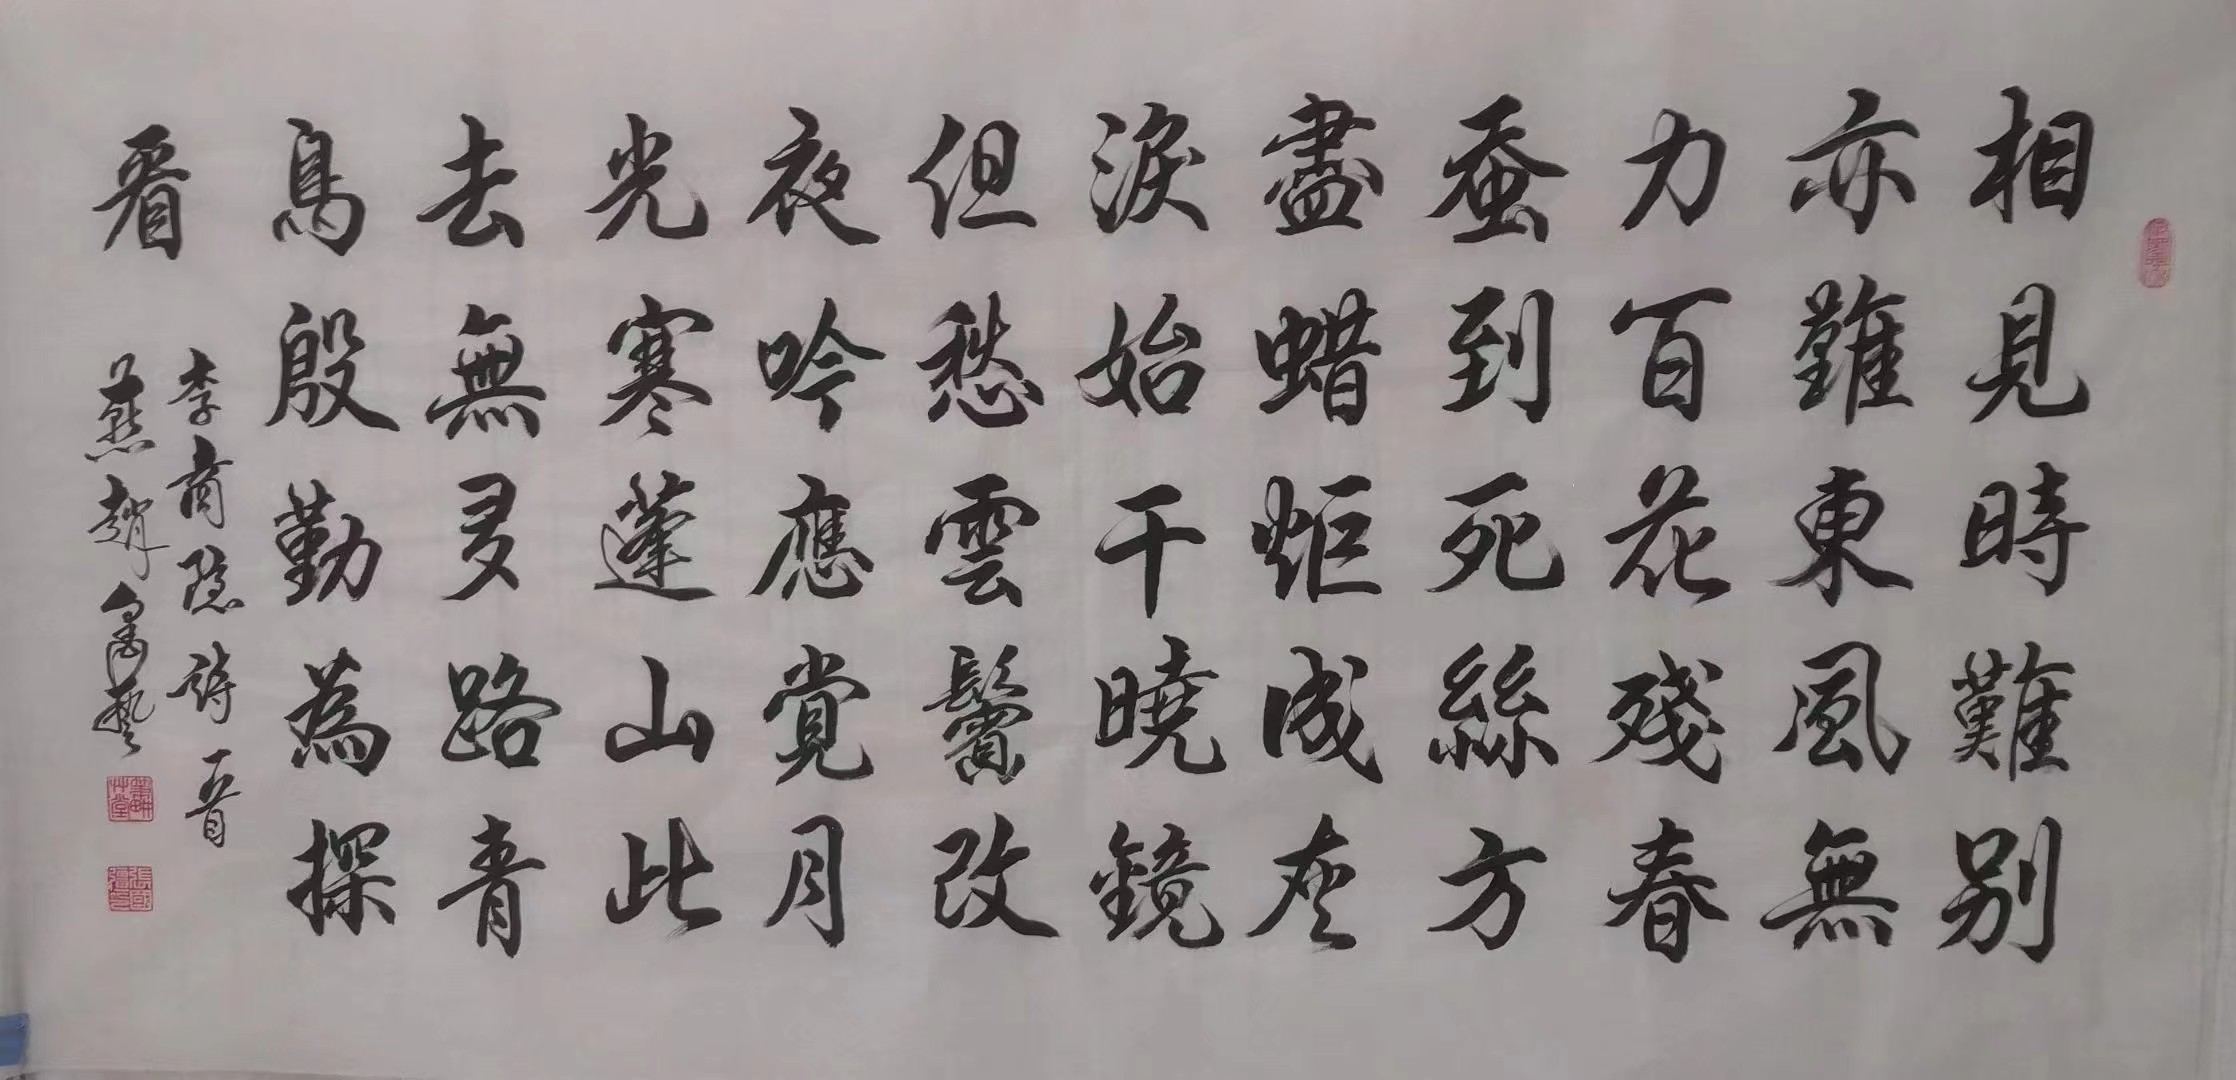 相見時難别
亦難東風無
力百花殘春
蚕到死絲方
盡蜡炬成灰
淚始干曉鏡
但愁雲鬢改
夜吟應覚月
光寒蓬山此
去無多路青
鳥殷勤為探
看
李商隐詩一首
燕趙